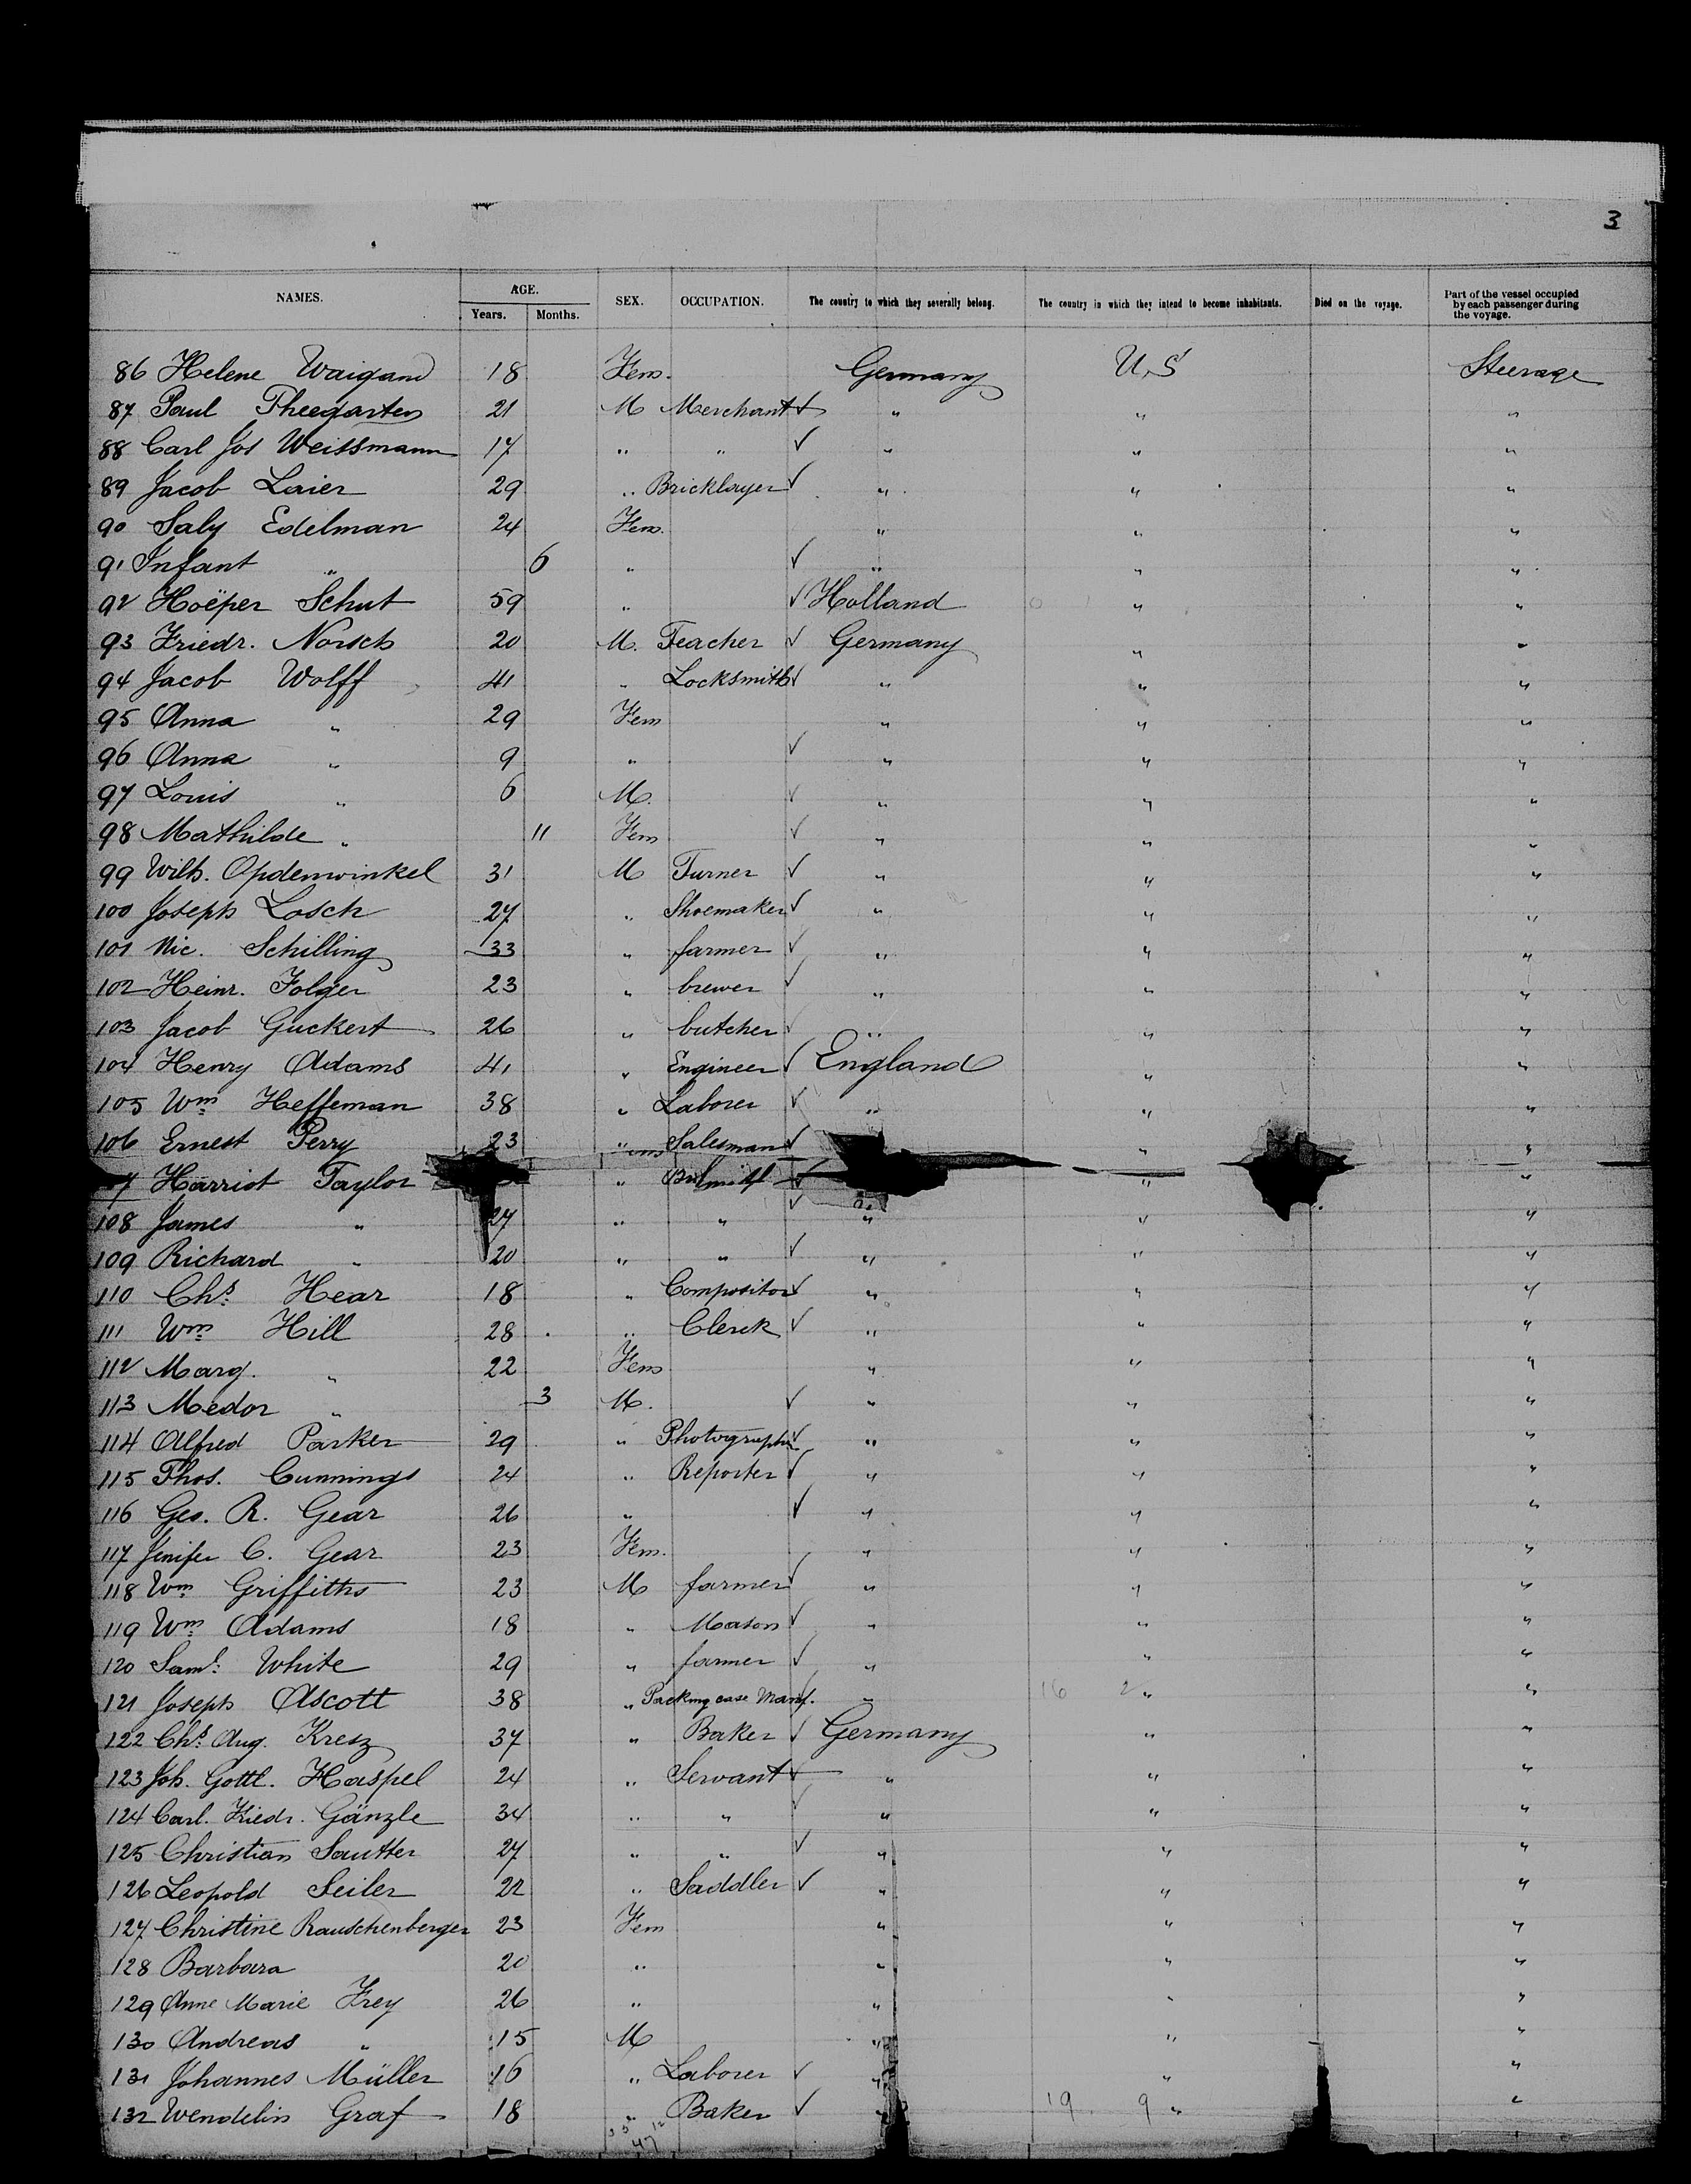 3
NAMES. AGE. SEX. OCCUPATION. The country to which they severally belong. The country in which they intend to become inhabitants. Died on the voyage. Part of the vessel occupied by each passenger during the voyage.
Years. Months.
86 Helene Waigand 18 Fem. Germany U.S Steerage
87 Paul Theegarten 21 M Merchant ✓ " " "
88 Carl Jos Weissmann 17 " " ✓ " " "
89 Jacob Laier 29 " Bricklayer ✓ " " "
90 Saly Edelman 24 Fem. " " "
91 Infant " 6 " ✓ " " "
92 Hoëper Schut 59 " ✓ Holland " "
93 Friedr. Norsch 20 M. Teacher ✓ Germany " "
94 Jacob Wolff 41 " Locksmith ✓ " " "
95 Anna " 29 Fem " " "
96 Anna " 9 " ✓ " " "
97 Louis " 6 M. ✓ " " "
98 Mathilde " 11 Fem ✓ " " "
99 Wilh. Opdenwinkel 31 M Turner ✓ " " "
100 Joseph Losch 27 " Shoemaker ✓ " " "
101 Nic. Schilling 33 " farmer ✓ " " "
102 Heinr. Folger 23 " brewer ✓ " " "
103 Jacob Guckert 26 " butcher ✓ " " "
104 Henry Adams 41 " Engineer ✓ England " "
105 Wm Heffernan 38 " Laborer ✓ " " "
106 Ernest Perry 23 " Salesman ✓ " "
7 Harriot Taylor " ✓ " "
108 James " 27 " " ✓ " " "
109 Richard " 20 " " ✓ " " "
110 Chs. Hear 18 " Compositor ✓ " " "
111 Wm Hill 28 " Clerck ✓ " " "
112 Marg. " 22 Fem " " "
113 Medor " 3 M. ✓ " " "
114 Alfred Parker 29 " Photographer ✓ " " "
115 Thos. Cunnings 24 " Reporter ✓ " " "
116 Geo. R. Gear 26 " ✓ " " "
117 Jenifer C. Gear 23 Fem. " " "
118 Wm Griffiths 23 M farmer ✓ " " "
119 Wm Adams 18 " Mason ✓ " " "
120 Saml. White 29 " farmer ✓ " " "
121 Joseph Ascott 38 " Packing case Manf. " 16 2 " "
122 Chs. Aug. Kresz 37 " Baker ✓ Germany " "
123 Joh. Gottl. Haspel 24 " Servant ✓ " " "
124 Carl. Friedr. Gänzle 34 " " ✓ " " "
125 Christian Sautter 27 " " ✓ " " "
126 Leopold Seiler 22 " Saddler ✓ " " "
127 Christine Rauschenberger 23 Fem " " "
128 Barbara 20 " " " "
129 Anne Marie Frey 26 " " " "
130 Andreas " 15 M " " "
131 Johannes Müller 16 " Laborer ✓ " " "
132 Wendelin Graf 18 " Baker ✓ " 19. 9 " "
47